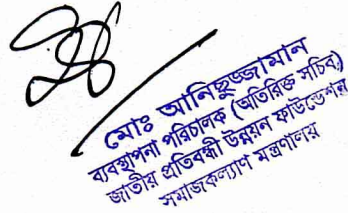 মোঃ আনিছুজ্জামান
ব্যবস্থাপনা পরিচালক (অতিরিক্ত সচিব)
জাতীয় প্রতিবন্ধী উন্নয়ন ফাউন্ডেশন
সমাজকল্যাণ মন্ত্রণালয়